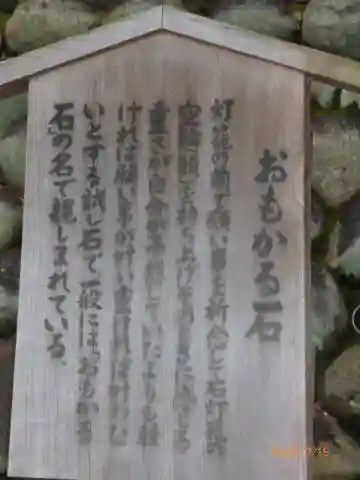 おもかる石
灯籠の前で願い事を祈念し石灯籠の
空輪(頭)を持ち上げそのときに感じる
重さが自分が予想していたよりも軽
ければ願い事が叶い重ければ叶わな
いとする試し石で一般には「おもかる
石」の名で親しまれている。